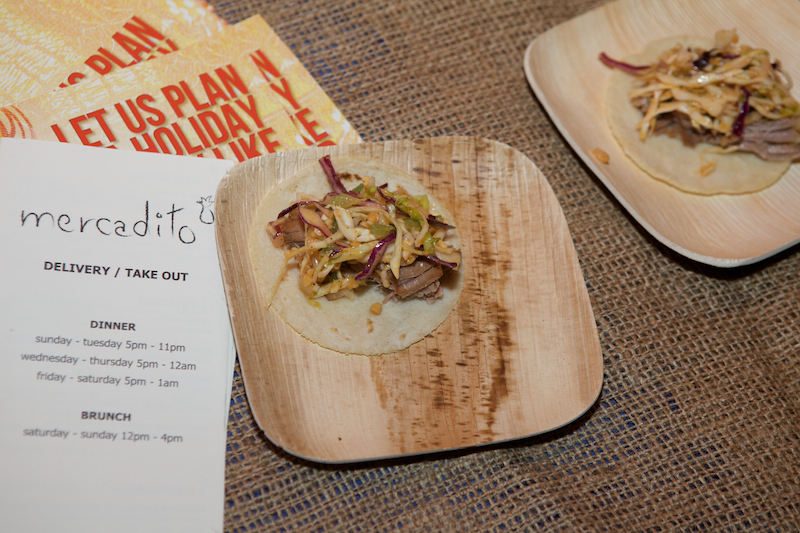 PLAN
LET US PLAN N
HOLIDAY Y
LIKE E
mercadito
DELIVERY / TAKE OUT
DINNER
sunday - tuesday 5pm - 11pm
wednesday - thursday 5pm - 12am
friday - saturday 5pm - 1am
BRUNCH
saturday - sunday 12pm - 4pm